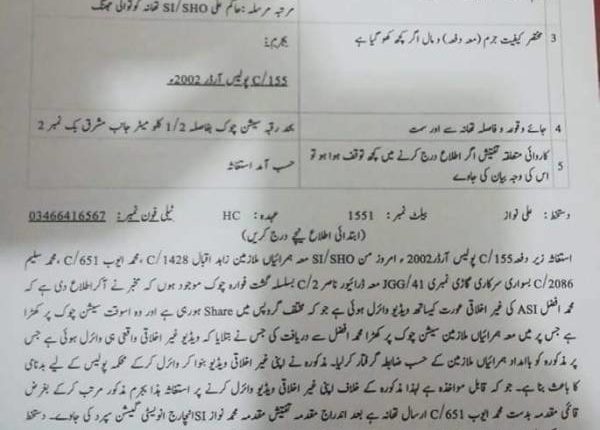 مرتبہ مرسلہ: حاکم علی SI/SHO تھانہ کوتوالی جھنگ
3 مختصر کیفیت جرم (معہ دفعہ) و مال اگر کچھ کھو گیا ہے
بجرم:
155/C پولیس آرڈر 2002ء
4 جائے وقوعہ و فاصلہ تھانہ سے اور سمت
بحد رقبہ سیشن چوک بفاصلہ 1/2 کلو میٹر جانب مشرق بیک نمبر 2
5 کاروائی متعلقہ تفتیش اگر اطلاع درج کرنے میں کچھ توقف ہوا ہو تو
اس کی وجہ بیان کی جاوے
حسب آمد استغاثہ
دستخط: علی نواز بیلٹ نمبر: 1551 عہدہ: HC ٹیلی فون نمبر: 03466416567
(ابتدائی اطلاع نیچے درج کریں)
استغاثہ زیر دفعہ 155/C پولیس آرڈر 2002ء امروز من SI/SHO معہ ہمراہیاں ملازمین زاہد اقبال 1428/C، محمد ایوب 651/C، محمد سلیم
2086/C بسواری سرکاری گاڑی نمبری 41/JGG معہ ڈرائیور ناصر 2/C بسلسلہ گشت فوارہ چوک موجود ہوں کہ مخبر نے آکر اطلاع دی ہے کہ
محمد افضل ASI کی غیر اخلاقی عورت کیساتھ ویڈیو وائرل ہوئی ہے جو کہ مختلف گروپس میں Share ہو رہی ہے اور وہ اسوقت سیشن چوک پر کھڑا
ہے جس پر میں معہ ہمراہیاں ملازمین سیشن چوک پر کھڑا محمد افضل سے دریافت کی جس نے بتلایا کہ ویڈیو غیر اخلاقی واقعی ہی وائرل ہوئی ہے جس
پر مذکورہ کو باامداد ہمراہیاں ملازمین کے حسب ضابطہ گرفتار کرلیا۔ مذکورہ نے اپنی غیر اخلاقی ویڈیو بنوا کر وائرل کرکے محکمہ پولیس کے لیے بدنامی
کا باعث بنا ہے۔ جو کہ قابل مواخذہ ہے لہذا مذکورہ کے خلاف اپنی غیر اخلاقی ویڈیو وائرل کرنے پر استغاثہ ہذا بجرم مذکور مرتب کرکے بغرض
قائمی مقدمہ بدست محمد ایوب 651/C ارسال تھانہ ہے بعد اندراج مقدمہ تفتیش مقدمہ محمد نواز SI انچارج انویسٹی گیشن سپرد کی جاوے۔ دستخط